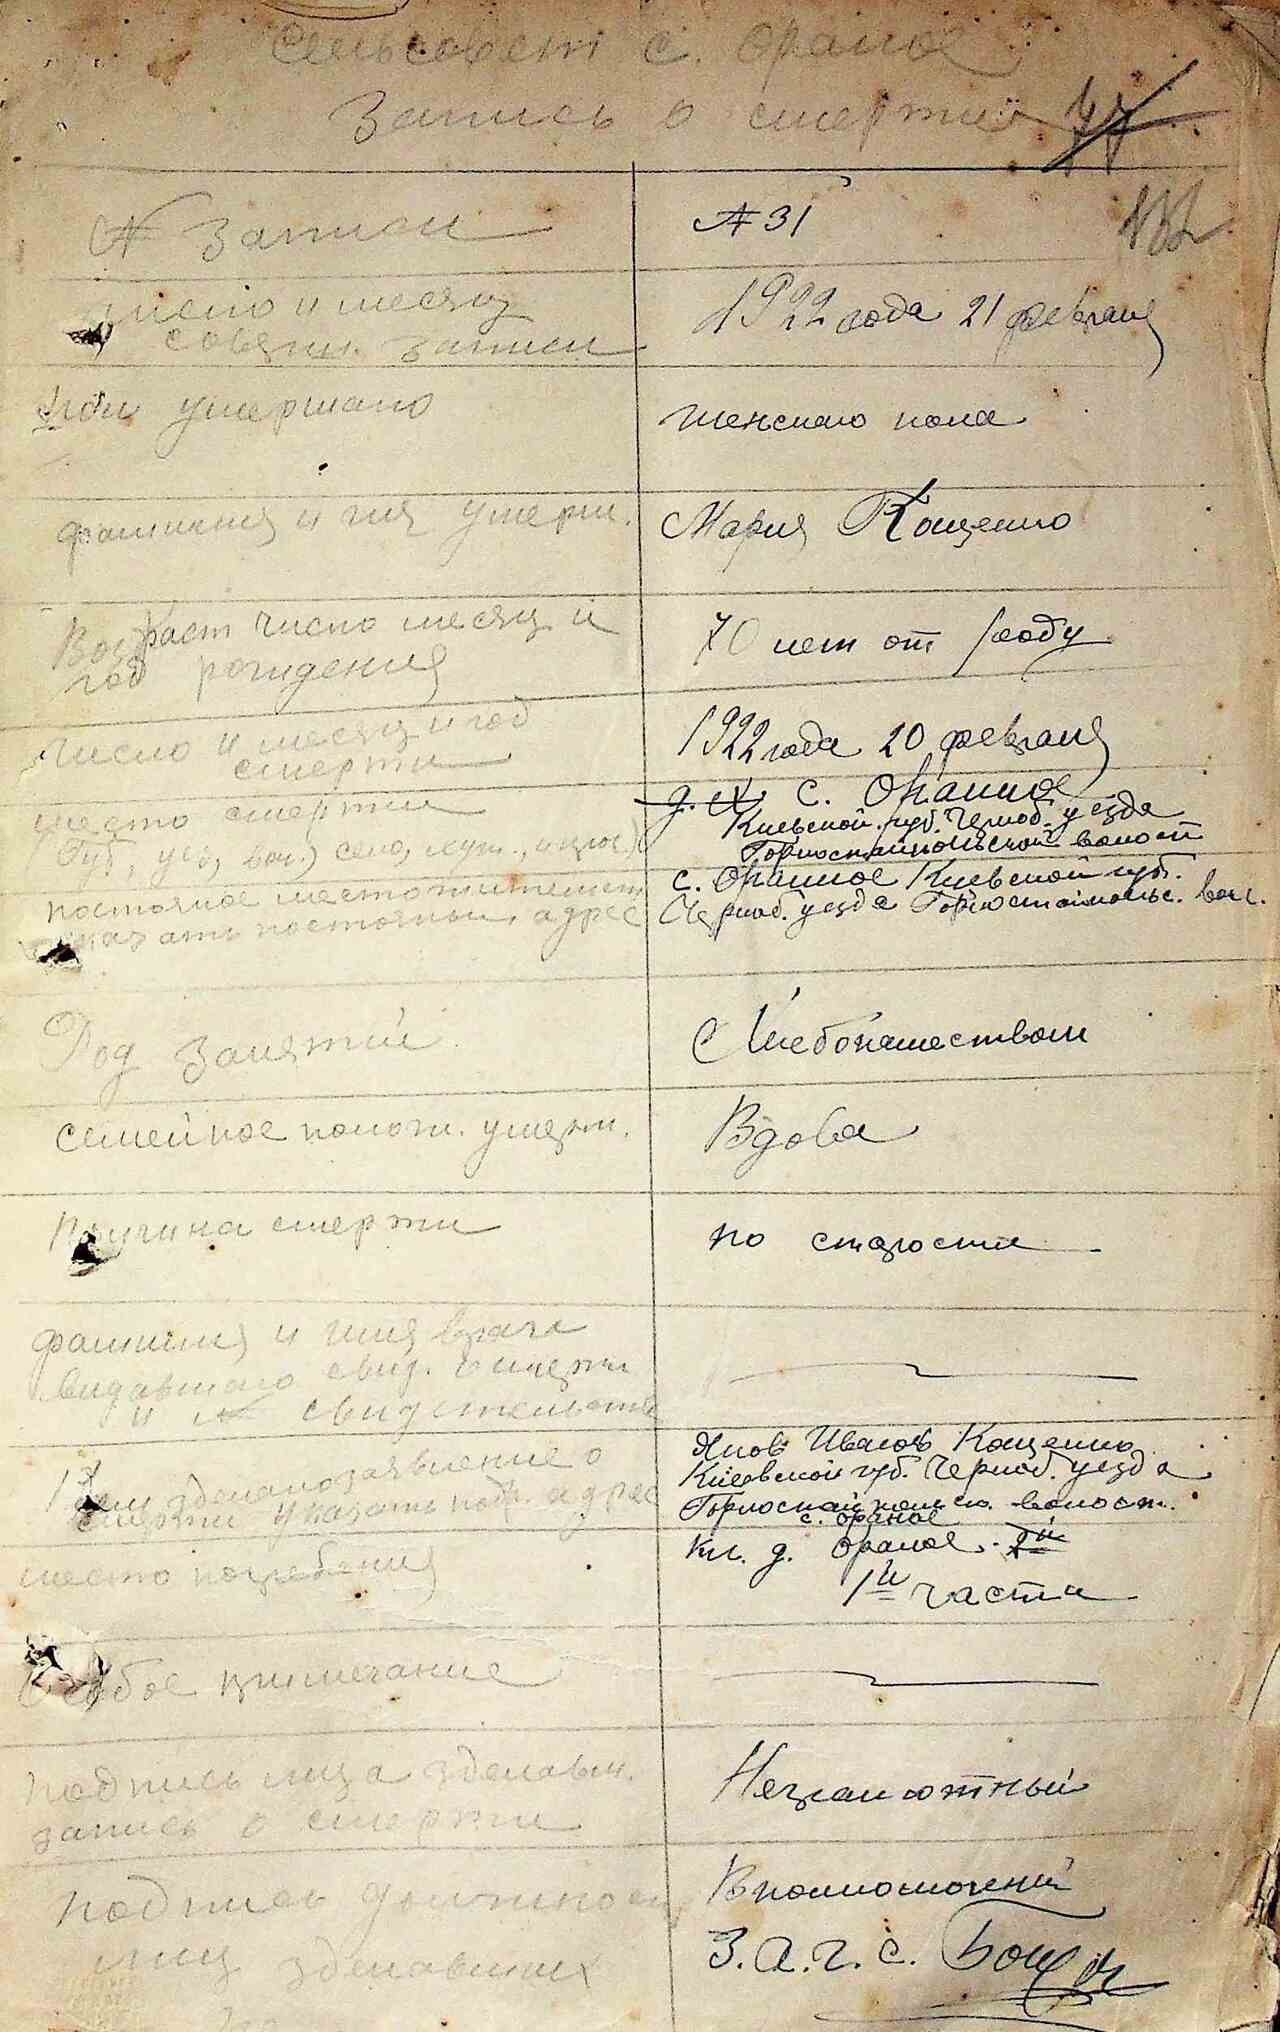 Сельсовет с. Ораное
Запись о смерти
132
№ записи
№ 31
число и месяц
соверш. записи
1922 года 21 февраля
Пол умершаго
женскаго пола
фамилия и имя умерш.
Мария Кощенко
Возраст число месяц и
год рождения
70 лет от роду
Число и месяц и год
смерти
1922 года 20 февраля
место смерти
Губ., уез., вол.) село, хут.,
с. Ораное
Киевской губ. Черноб. уезда
Горностайпольской волост
постоянное местожительст
указать постоянный адрес
с. Ораное Киевской губ.
Черноб. уезда Горностайпольс. вол.
Род занятий
Хлебопашеством
Семейное полож. умерш.
Вдова
Причина смерти
по старости
фамилия и имя врача
видавшаго свид. о смерти
и № свидетельства
Кем зделано заявление о
смерти указать подр. адрес
Яков Иванов Кощенко
Киевской губ. Черноб. уезда
Горностайпольск. волост.
с. Ораное
место погребения
кл. д. Ораное 2й
1й части
Особое примечание
подпись лица зделавш.
запись о смерти
Неграмотный
подпись должност
лиц зделавших
Вполномочений
З.А.Г.С.